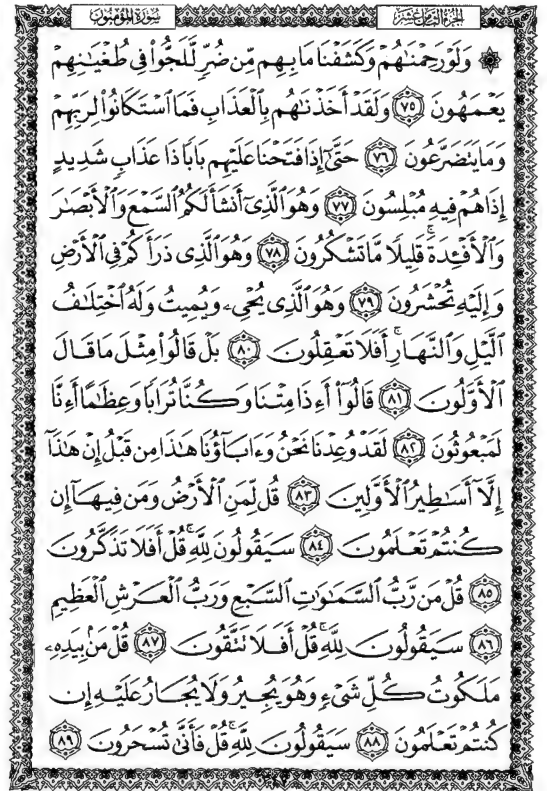 سورة المؤمنون
الجزء الثامن عشر
۞ وَلَوْ رَحِمْنَٰهُمْ وَكَشَفْنَا مَا بِهِم مِّن ضُرٍّ لَّلَجُّوا۟ فِى طُغْيَٰنِهِمْ
يَعْمَهُونَ ٧٥ وَلَقَدْ أَخَذْنَٰهُم بِٱلْعَذَابِ فَمَا ٱسْتَكَانُوا۟ لِرَبِّهِمْ
وَمَا يَتَضَرَّعُونَ ٧٦ حَتَّىٰٓ إِذَا فَتَحْنَا عَلَيْهِم بَابًا ذَا عَذَابٍ شَدِيدٍ
إِذَا هُمْ فِيهِ مُبْلِسُونَ ٧٧ وَهُوَ ٱلَّذِىٓ أَنشَأَ لَكُمُ ٱلسَّمْعَ وَٱلْأَبْصَٰرَ
وَٱلْأَفْـِٔدَةَ ۚ قَلِيلًا مَّا تَشْكُرُونَ ٧٨ وَهُوَ ٱلَّذِى ذَرَأَكُمْ فِى ٱلْأَرْضِ
وَإِلَيْهِ تُحْشَرُونَ ٧٩ وَهُوَ ٱلَّذِى يُحْىِۦ وَيُمِيتُ وَلَهُ ٱخْتِلَٰفُ
ٱلَّيْلِ وَٱلنَّهَارِ ۚ أَفَلَا تَعْقِلُونَ ٨٠ بَلْ قَالُوا۟ مِثْلَ مَا قَالَ
ٱلْأَوَّلُونَ ٨١ قَالُوٓا۟ أَءِذَا مِتْنَا وَكُنَّا تُرَابًا وَعِظَٰمًا أَءِنَّا
لَمَبْعُوثُونَ ٨٢ لَقَدْ وُعِدْنَا نَحْنُ وَءَابَآؤُنَا هَٰذَا مِن قَبْلُ إِنْ هَٰذَآ
إِلَّآ أَسَٰطِيرُ ٱلْأَوَّلِينَ ٨٣ قُل لِّمَنِ ٱلْأَرْضُ وَمَن فِيهَآ إِن
كُنتُمْ تَعْلَمُونَ ٨٤ سَيَقُولُونَ لِلَّهِ ۚ قُلْ أَفَلَا تَذَكَّرُونَ
٨٥ قُلْ مَن رَّبُّ ٱلسَّمَٰوَٰتِ ٱلسَّبْعِ وَرَبُّ ٱلْعَرْشِ ٱلْعَظِيمِ
٨٦ سَيَقُولُونَ لِلَّهِ ۚ قُلْ أَفَلَا تَتَّقُونَ ٨٧ قُلْ مَنۢ بِيَدِهِۦ
مَلَكُوتُ كُلِّ شَىْءٍ وَهُوَ يُجِيرُ وَلَا يُجَارُ عَلَيْهِ إِن
كُنتُمْ تَعْلَمُونَ ٨٨ سَيَقُولُونَ لِلَّهِ ۚ قُلْ فَأَنَّىٰ تُسْحَرُونَ ٨٩